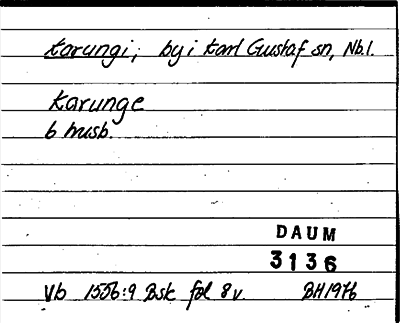 Karungi; by i Karl Gustaf sn, Nb.l.
Karunge
6 husb.
DAUM
3136
Vb 1556:9 Bsk fol 8v. BH1976